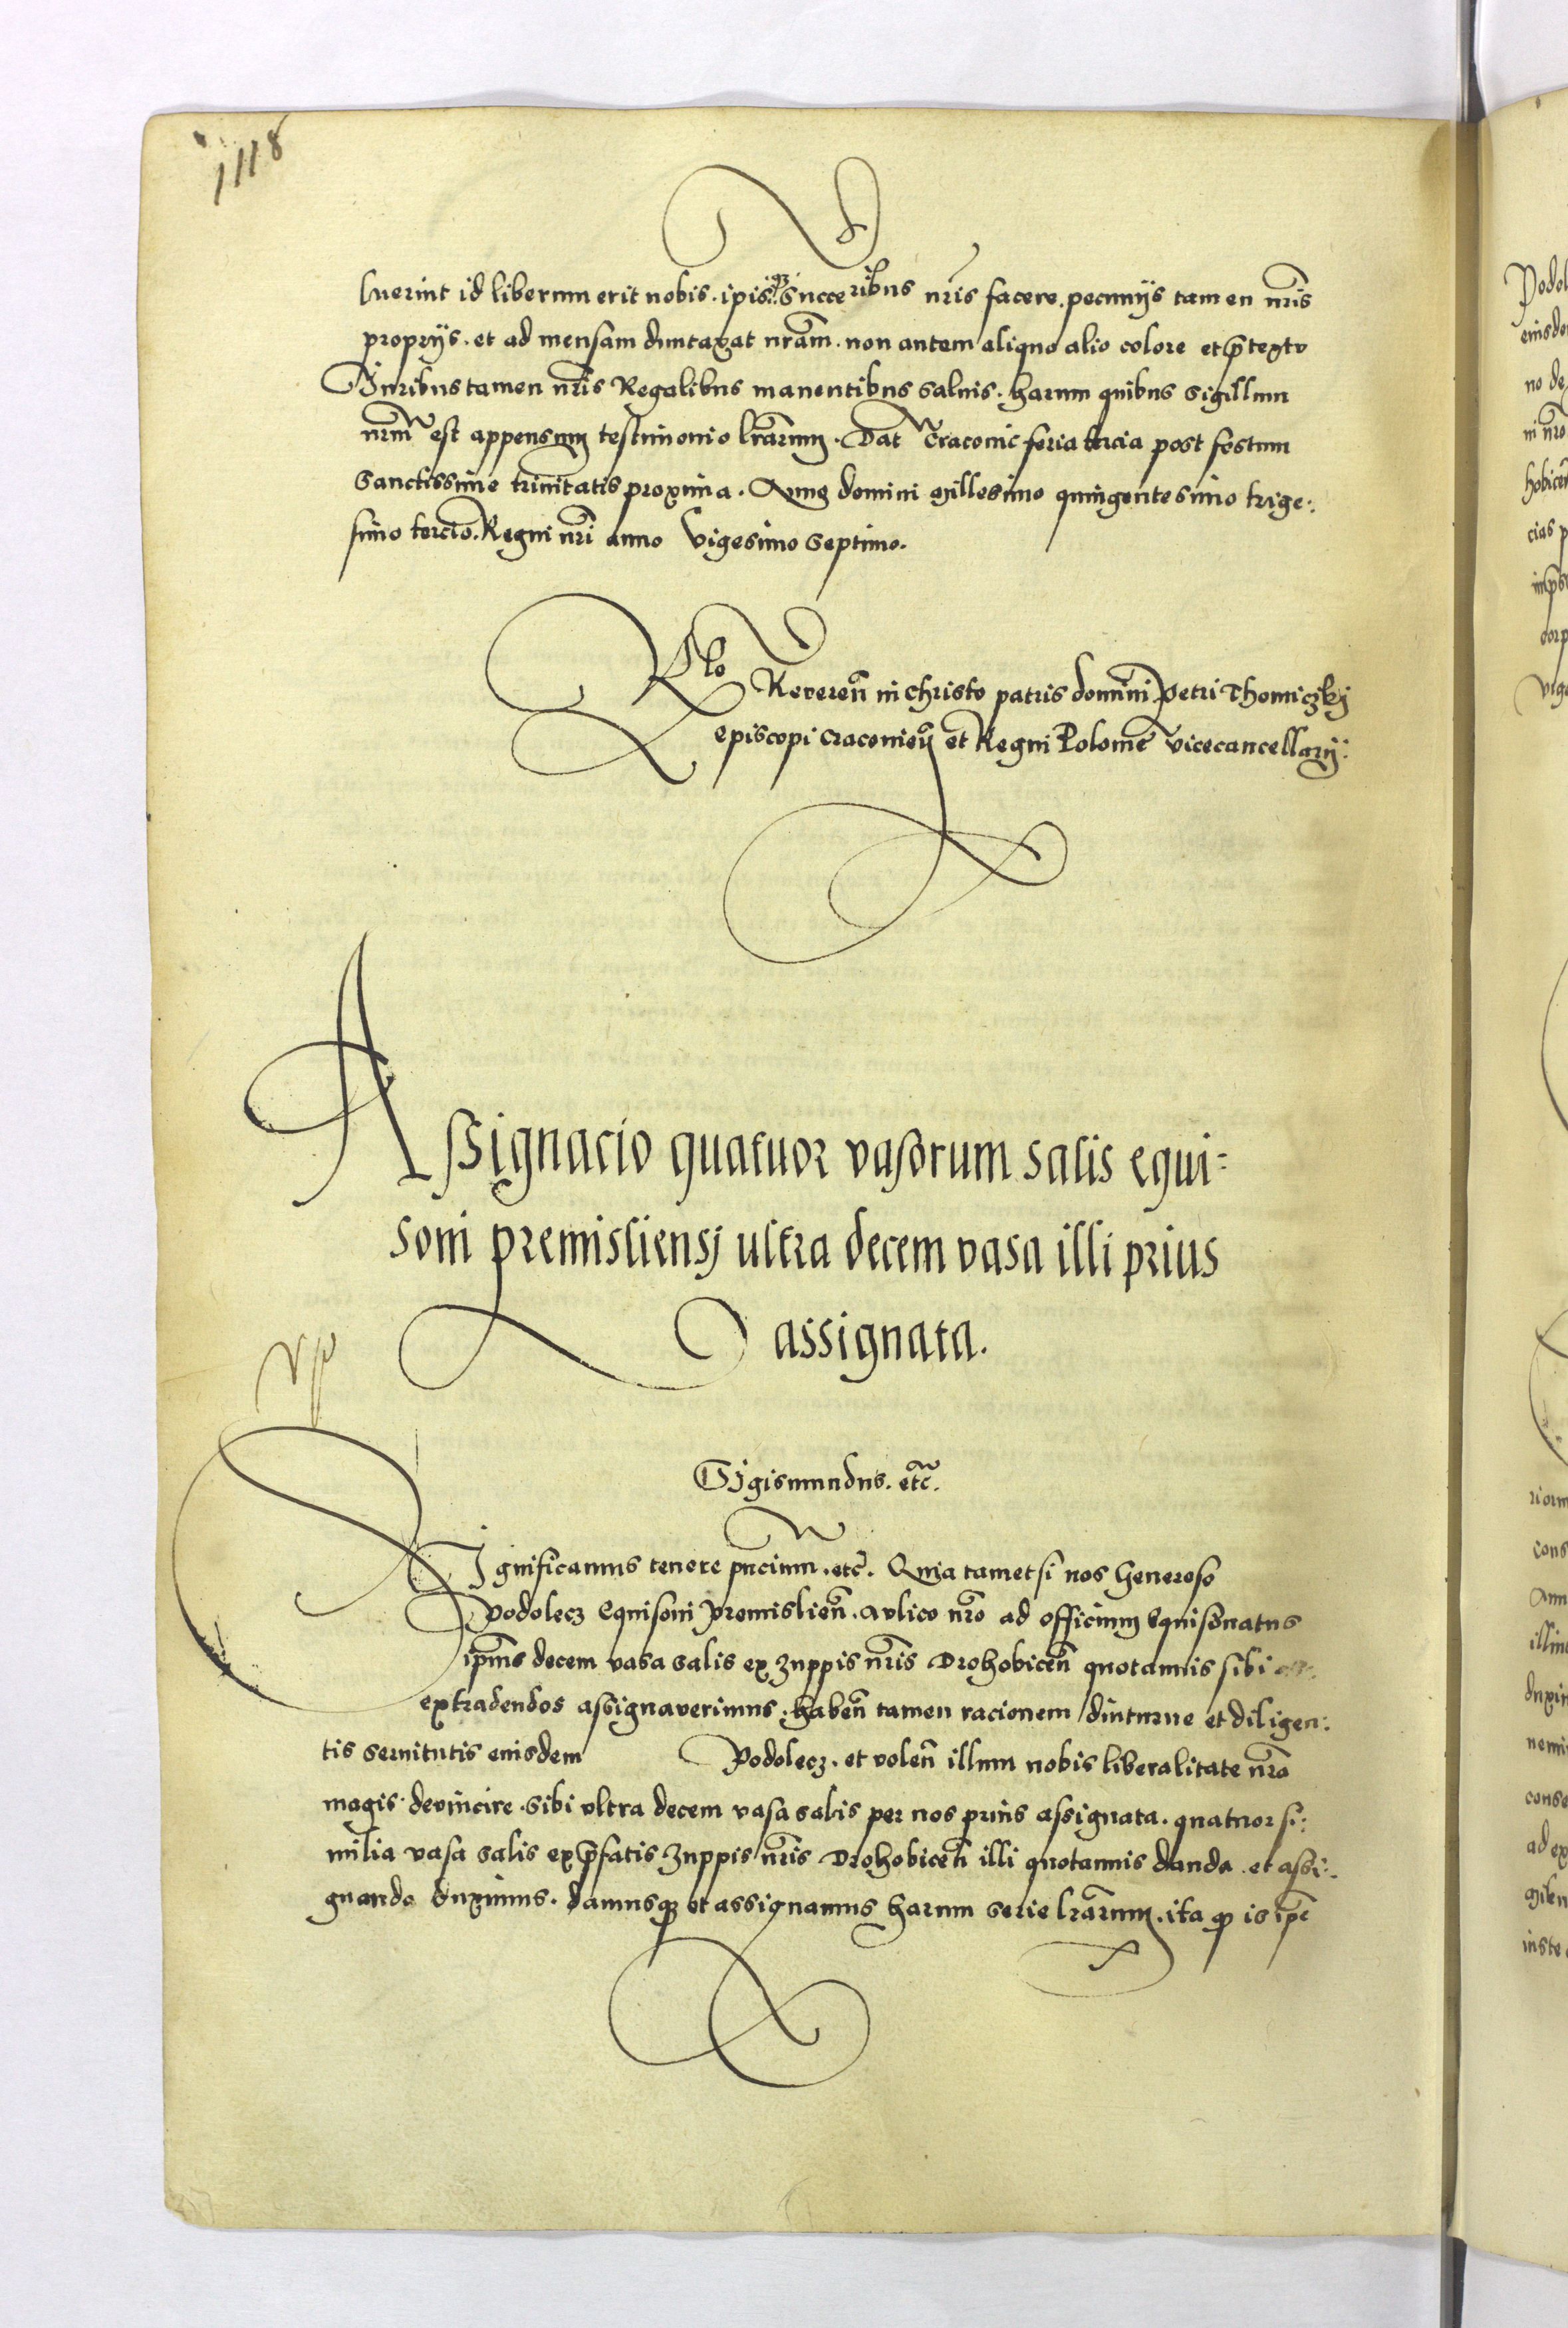 1118
luerint id liberum erit nobis. ipisqȝ Succeribus nr̃is facere. pecunijs tamen nr̃is
proprijs. et ad mensam duntaxat nr̃am. non autem aliquo alio colore et p̃textu
Juribus tamen nr̃is Regalibus manentibus saluis. harum quibus sigillum
nrm̃ est appensum testimonio lr̃arum. Dat̃ Cracovie feria tercia post festum
Sanctissime trinitatis proxima. Anno domini Millesimo quingentesimo trige:
simo tercio. Regni nr̃i anno Vigesimo Septimo.
Rlo Reveren̄ in christo patris domini Petri Thomiczkj
episcopi Cracovien̄ et Regni Polonie vicecancellarij:
Assignacio quatuor vasorum salis equi=
soni premisliensj ultra decem vasa illi prius
assignata.
Sigismundus. etc̃.
Significamus tenere pñcium. etc̃. Quia tametsi nos Generoso
Podolecz Equisoni Premislien̄. Aulico nr̃o ad officium Equisonatus
ipm̃s decem vasa salis ex zuppis nr̃is Drohobicen̄ quotannis sibi
extradendos assignaverimus. haben̄ tamen racionem diuturne et diligen:
tis seruitutis eiusdem Podolecz. et volen̄ illum nobis liberalitate nr̃a
magis devincire. sibi ultra decem vasa salis per nos prius assignata. quatuor si:
milia vasa salis ex p̃fatis zuppis nr̃is Drohobicen̄ illi quotannis danda et assi:
gnanda duximus. damusqȝ et assignamus harum serie lr̃arum. ita qȝ is ip̃e